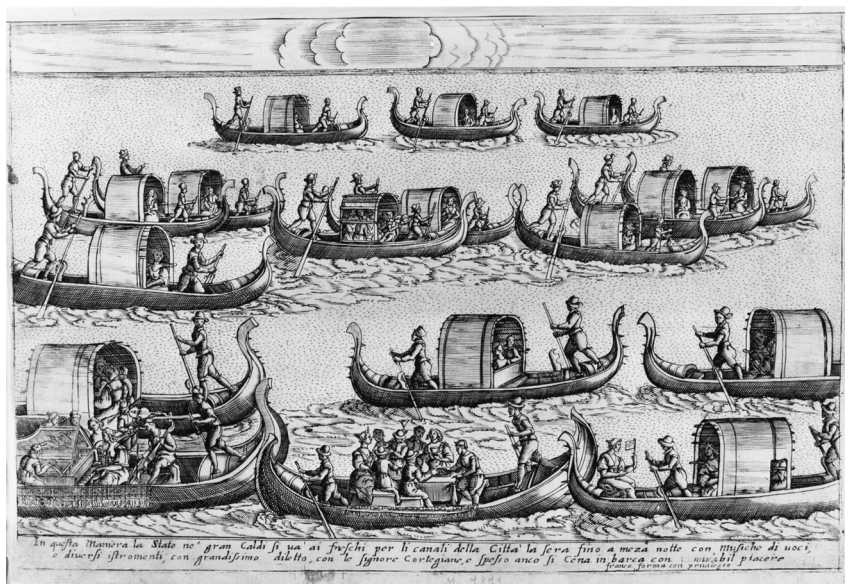 In questa Maniera la State ne' gran Caldi si va' ai freschi per li canali della Citta' la sera fino a meza notte con Musiche di voci,
e diversi istromenti, con grandissimo diletto, con le signore Cortegiane, e spesso anco si Cena in barca con mirabil piacere
franco forma con privilegio